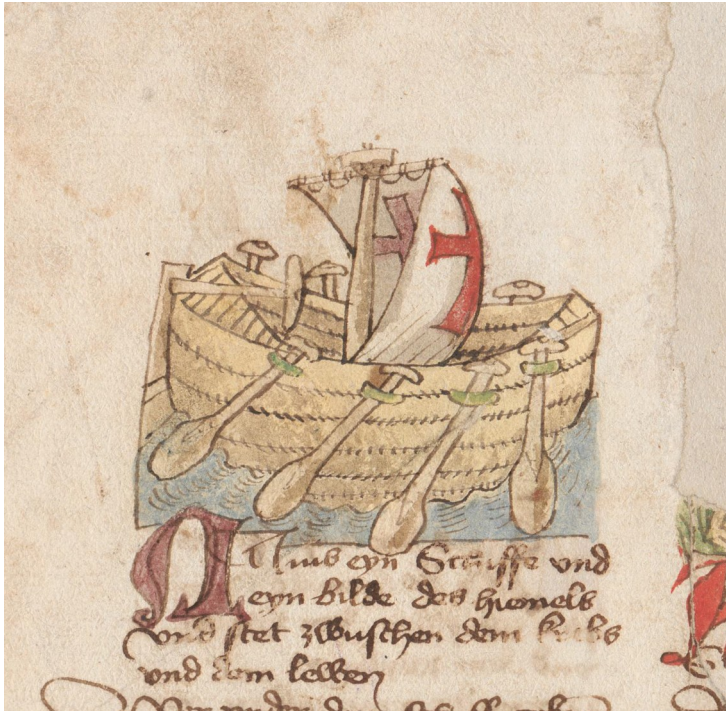 Nauis eyn Schiffe vnd
eyn bilde des hiemels
vnd stet zwuschen dem krebs
vnd dem lewen